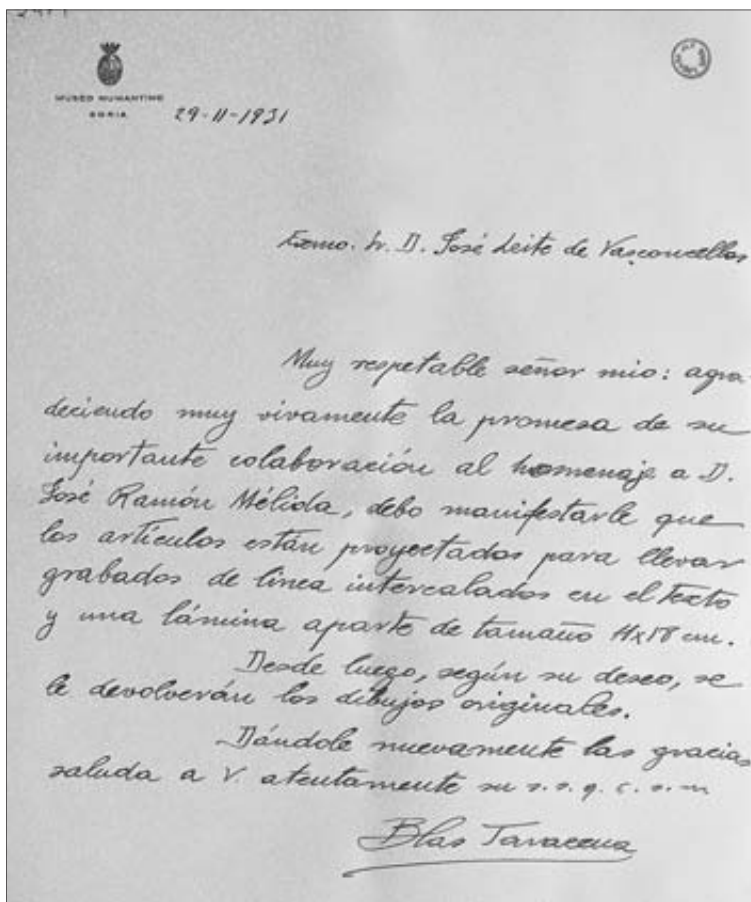 MUSEO NUMANTINO
SORIA
29-11-1931
Exmo. Sr. D. José Leite de Vasconcellos
Muy respetable señor mio: agra-
deciendo muy vivamente la promesa de su
importante colaboración al homenaje a D.
José Ramón Mélida, debo manifestarle que
los artículos están proyectados para llevar
grabados de línea intercalados en el texto
y una lámina aparte de tamaño 11x18 cm.
Desde luego, según su deseo, se
le devolverán los dibujos originales.
Dándole nuevamente las gracias
saluda a V. atentamente su s. s. q. e. s. m
Blas Taracena